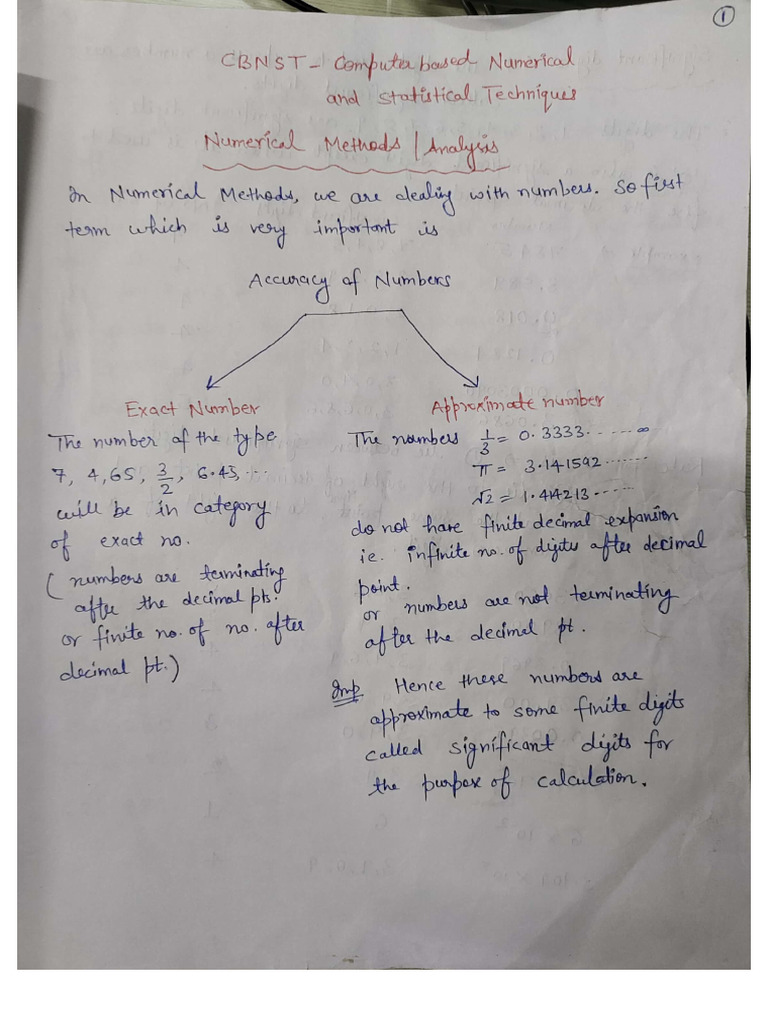 1
CBNST - Computer based Numerical
and Statistical Techniques
Numerical Methods / Analysis
In Numerical Methods, we are dealing with numbers. So first
term which is very important is
Accuracy of Numbers
Exact Number
The number of the type
7, 4, 65, 3/2, 6.45, ...
will be in category
of exact no.
(numbers are terminating
after the decimal pts.
or finite no. of no. after
decimal pt.)
Approximate number
The numbers 1/3 = 0.3333......∞
π = 3.141592......
√2 = 1.414213......
do not have finite decimal expansion
ie. infinite no. of digits after decimal
point.
or numbers are not terminating
after the decimal pt.
Imp Hence these numbers are
approximate to some finite digits
called significant digits for
the purpose of calculation.